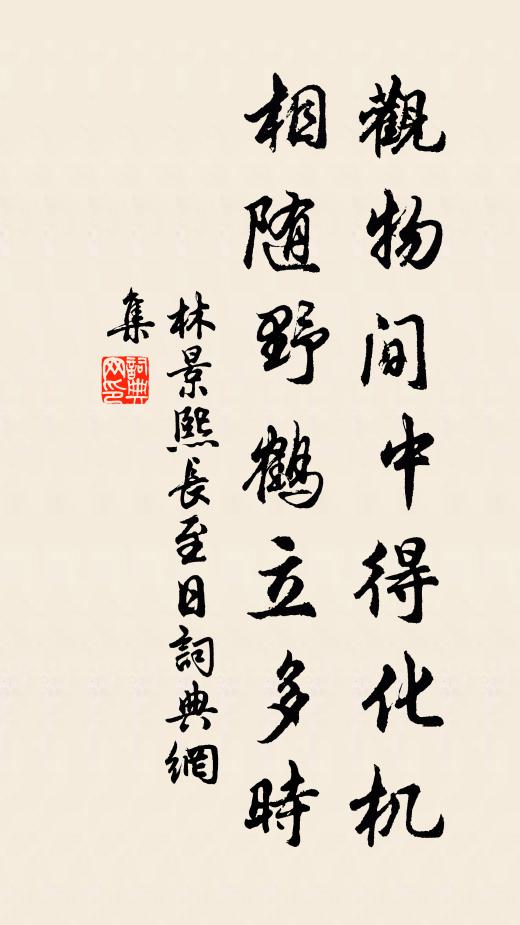 觀物间中得化机
相随野鹤立多時
林景熙長至日詞典網
集
詞典
网印